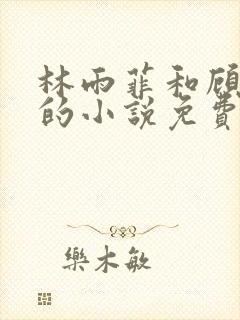 林雨菲和顾
的小說免費
樂木敏